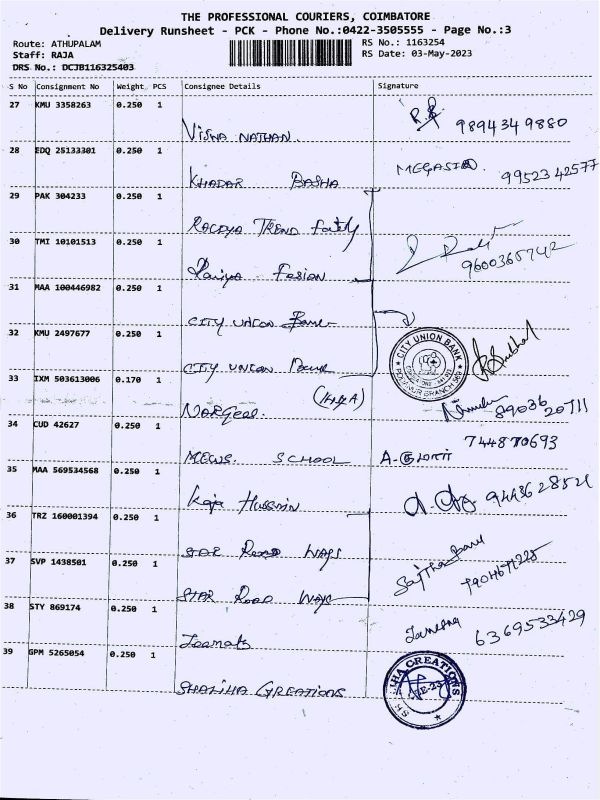 THE PROFESSIONAL COURIERS, COIMBATORE
Delivery Runsheet - PCK - Phone No.:0422-3505555 - Page No.:3
Route: ATHUPALAM
RS No.: 1163254
Staff: RAJA
RS Date: 03-May-2023
DRS No.: DCJB116325403
S No Consignment No Weight PCS Consignee Details Signature
27 KMU 3358263 0.250 1
VISWA NATHAN. 9894349880
28 EDQ 25133301 0.250 1
KHADAR BASHA 9952342577
29 PAK 304233 0.250 1
TREND
30 TMI 10101513 0.250 1
9600365742
31 MAA 100446982 0.250 1
CITY UNION
32 KMU 2497677 0.250 1
CITY UNION
CITY UNION BANK
33 IXM 503613006 0.170 1
89036 20711
34 CUD 42627 0.250 1
MEWS SCHOOL 744870693
35 MAA 569534568 0.250 1
Kaja Hussain
36 TRZ 160001394 0.250 1
STAR Road WAYS
37 SVP 1438501 0.250 1
STAR ROAD WAYS
38 STY 869174 0.250 1
6369533429
39 GPM 5265054 0.250 1
SHALIHA CREATIONS